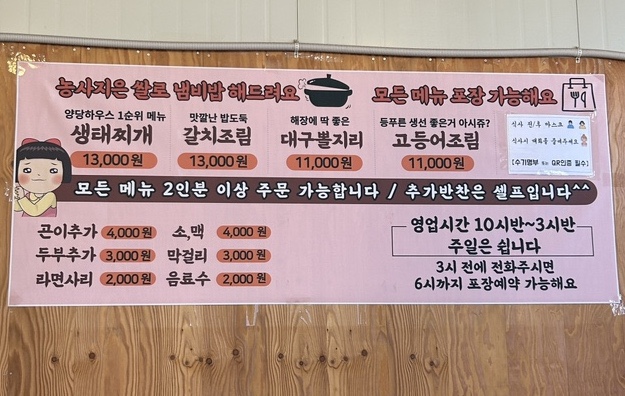 농사지은 쌀로 냄비밥 해드려요
모든 메뉴 포장 가능해요
양당하우스 1순위 메뉴
생태찌개
13,000원
맛깔난 밥도둑
갈치조림
13,000원
해장에 딱 좋은
대구뽈지리
11,000원
등푸른 생선 좋은거 아시쥬?
고등어조림
11,000원
식사 전/후 마스크
식사시 대화를 줄여주세요
[수기명부 또는 QR인증 필수]
모든 메뉴 2인분 이상 주문 가능합니다 / 추가반찬은 셀프입니다^^
곤이추가 4,000원
소,맥 4,000원
두부추가 3,000원
막걸리 3,000원
라면사리 2,000원
음료수 2,000원
영업시간 10시반~3시반
주일은 쉽니다
3시 전에 전화주시면
6시까지 포장예약 가능해요